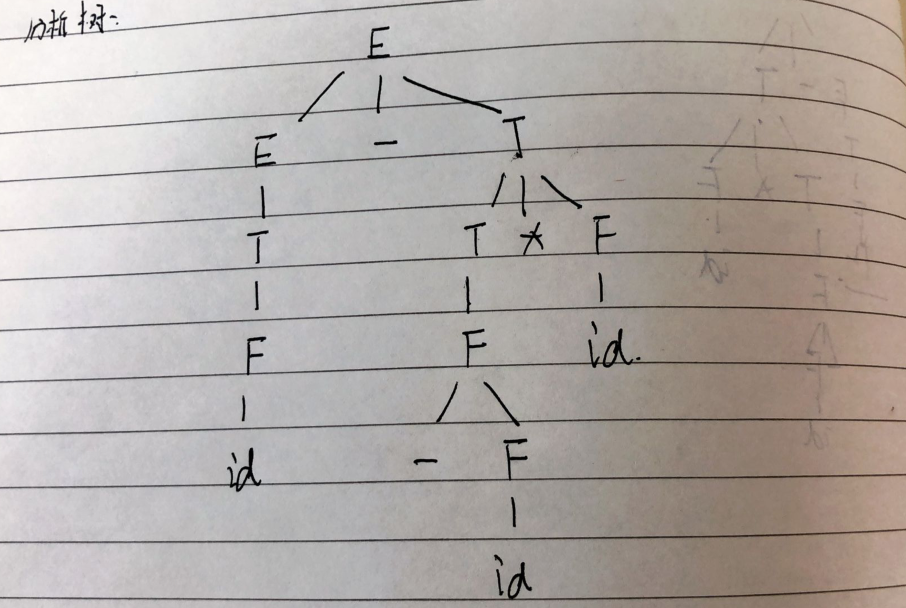 分析树:
E
E - T
T T * F
F F id.
id - F
id